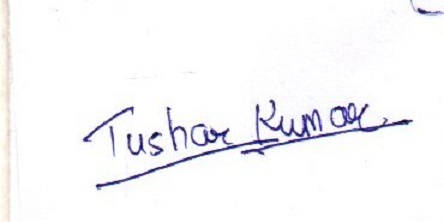 Tushar Kumar